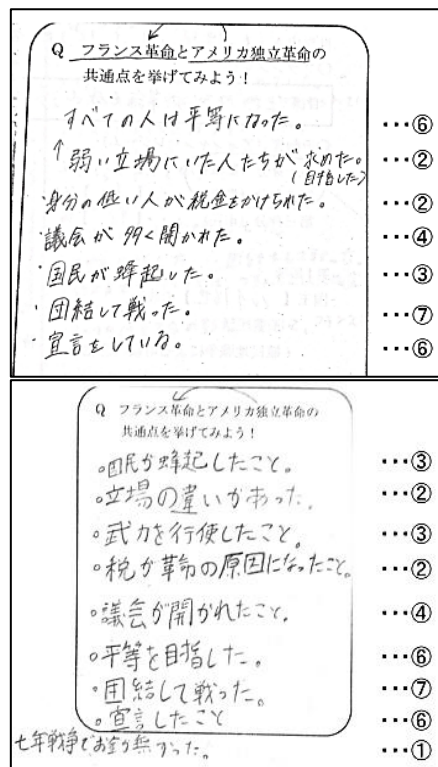 Q フランス革命とアメリカ独立革命の
共通点を挙げてみよう！
すべての人は平等になった。 …⑥
↑弱い立場にいた人たちが求めた。 …②
(目指した)
・身分の低い人が税金をかけられた。 …②
・議会が多く開かれた。 …④
・国民が蜂起した。 …③
・団結して戦った。 …⑦
・宣言をしている。 …⑥
Q フランス革命とアメリカ独立革命の
共通点を挙げてみよう！
・国民が蜂起したこと。 …③
・立場の違いがあった。 …②
・武力を行使したこと。 …③
・税が革命の原因になったこと。 …②
・議会が開かれたこと。 …④
・平等を目指した。 …⑥
・団結して戦った。 …⑦
・宣言したこと …⑥
七年戦争でお金が無かった。 …①